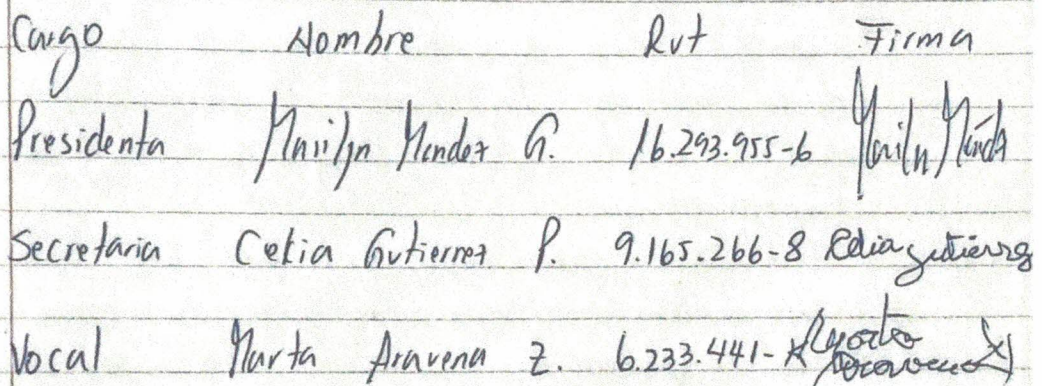 Cargo Nombre Rut Firma
Presidenta Marilyn Mendez G. 16.293.955-6 Mariln Méndez
Secretaria Celia Gutierrez P. 9.165.266-8 Celia gutiérrez
Vocal Marta Aravena Z. 6.233.441-K